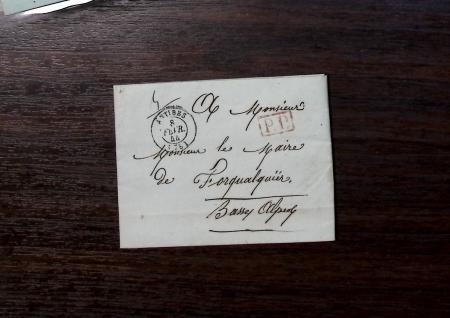 ANTIBES
8
FEVR.
44
(78)
A Monsieur
P.P.
Monsieur le Maire
de Forqualquier.
Basses Alpes